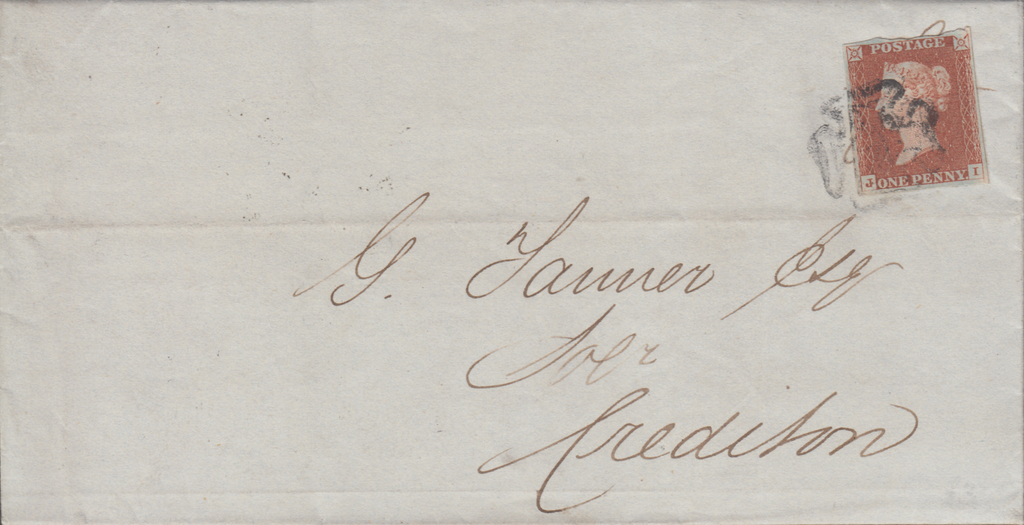 POSTAGE
J ONE PENNY. I
G. Tanner Esq
Crediton